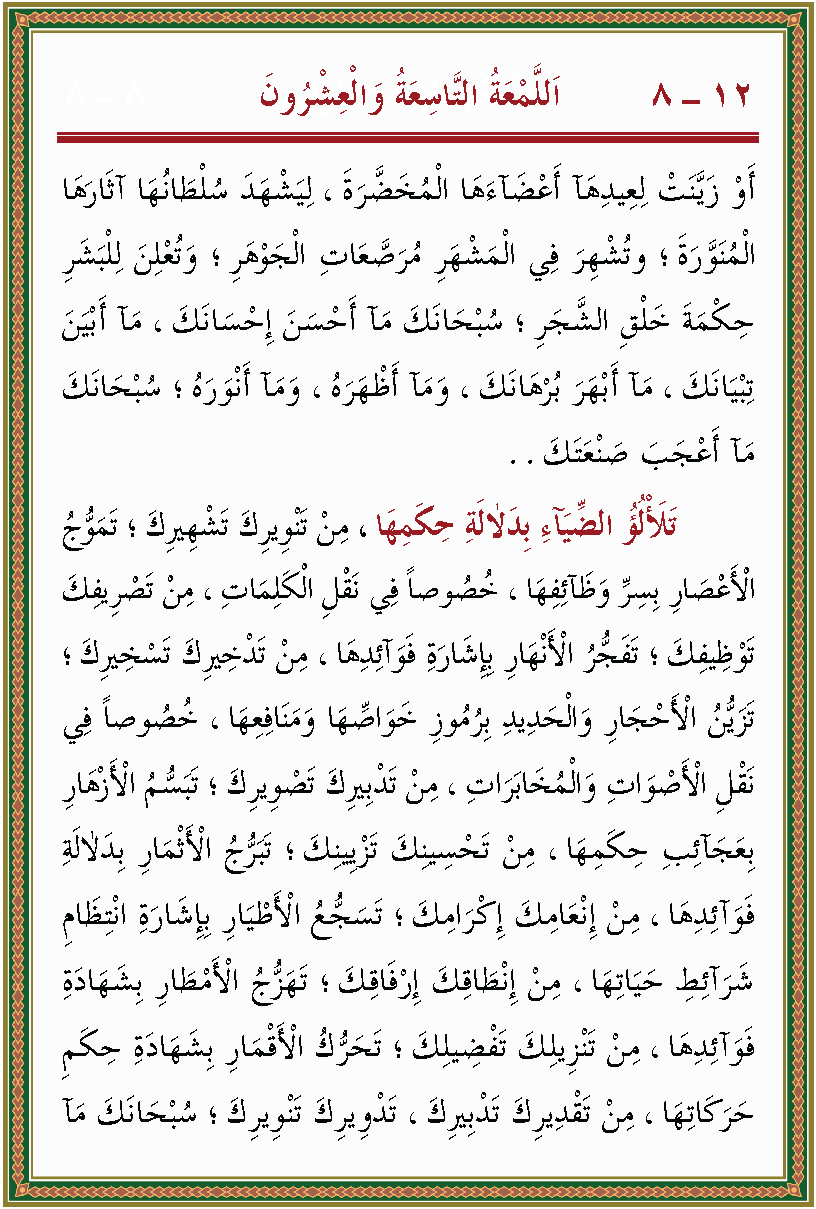 ١٢ – ٨ اَللَّمْعَةُ التَّاسِعَةُ وَالْعِشْرُونَ ٨ – ٨
أَوْ زَيَّنَتْ لِعِيدِهَآ أَعْضَآءَهَا الْمُخَضَّرَةَ ، لِيَشْهَدَ سُلْطَانُهَا آثَارَهَا
الْمُنَوَّرَةَ ؛ وتُشْهِرَ فِي الْمَشْهَرِ مُرَصَّعَاتِ الْجَوْهَرِ ؛ وَتُعْلِنَ لِلْبَشَرِ
حِكْمَةَ خَلْقِ الشَّجَرِ ؛ سُبْحَانَكَ مَآ أَحْسَنَ إِحْسَانَكَ ، مَآ أَبْيَنَ
تِبْيَانَكَ ، مَآ أَبْهَرَ بُرْهَانَكَ ، وَمَآ أَظْهَرَهُ ، وَمَآ أَنْوَرَهُ ؛ سُبْحَانَكَ
مَآ أَعْجَبَ صَنْعَتَكَ . .
تَلَأْلُؤُ الضِّيَآءِ بِدَلَالَةِ حِكَمِهَا ، مِنْ تَنْوِيرِكَ تَشْهِيرِكَ ؛ تَمَوُّجُ
الْأَعْصَارِ بِسِرِّ وَظَآئِفِهَا ، خُصُوصاً فِي نَقْلِ الْكَلِمَاتِ ، مِنْ تَصْرِيفِكَ
تَوْظِيفِكَ ؛ تَفَجُّرُ الْأَنْهَارِ بِإِشَارَةِ فَوَآئِدِهَا ، مِنْ تَدْخِيرِكَ تَسْخِيرِكَ ؛
تَزَيُّنُ الْأَحْجَارِ وَالْحَدِيدِ بِرُمُوزِ خَوَاصِّهَا وَمَنَافِعِهَا ، خُصُوصاً فِي
نَقْلِ الْأَصْوَاتِ وَالْمُخَابَرَاتِ ، مِنْ تَدْبِيرِكَ تَصْوِيرِكَ ؛ تَبَسُّمُ الْأَزْهَارِ
بِعَجَآئِبِ حِكَمِهَا ، مِنْ تَحْسِينِكَ تَزْيِينِكَ ؛ تَبَرُّجُ الْأَثْمَارِ بِدَلَالَةِ
فَوَآئِدِهَا ، مِنْ إِنْعَامِكَ إِكْرَامِكَ ؛ تَسَجُّعُ الْأَطْيَارِ بِإِشَارَةِ انْتِظَامِ
شَرَآئِطِ حَيَاتِهَا ، مِنْ إِنْطَاقِكَ إِرْفَاقِكَ ؛ تَهَزُّجُ الْأَمْطَارِ بِشَهَادَةِ
فَوَآئِدِهَا ، مِنْ تَنْزِيلِكَ تَفْضِيلِكَ ؛ تَحَرُّكُ الْأَقْمَارِ بِشَهَادَةِ حِكَمِ
حَرَكَاتِهَا ، مِنْ تَقْدِيرِكَ تَدْبِيرِكَ ، تَدْوِيرِكَ تَنْوِيرِكَ ؛ سُبْحَانَكَ مَآ